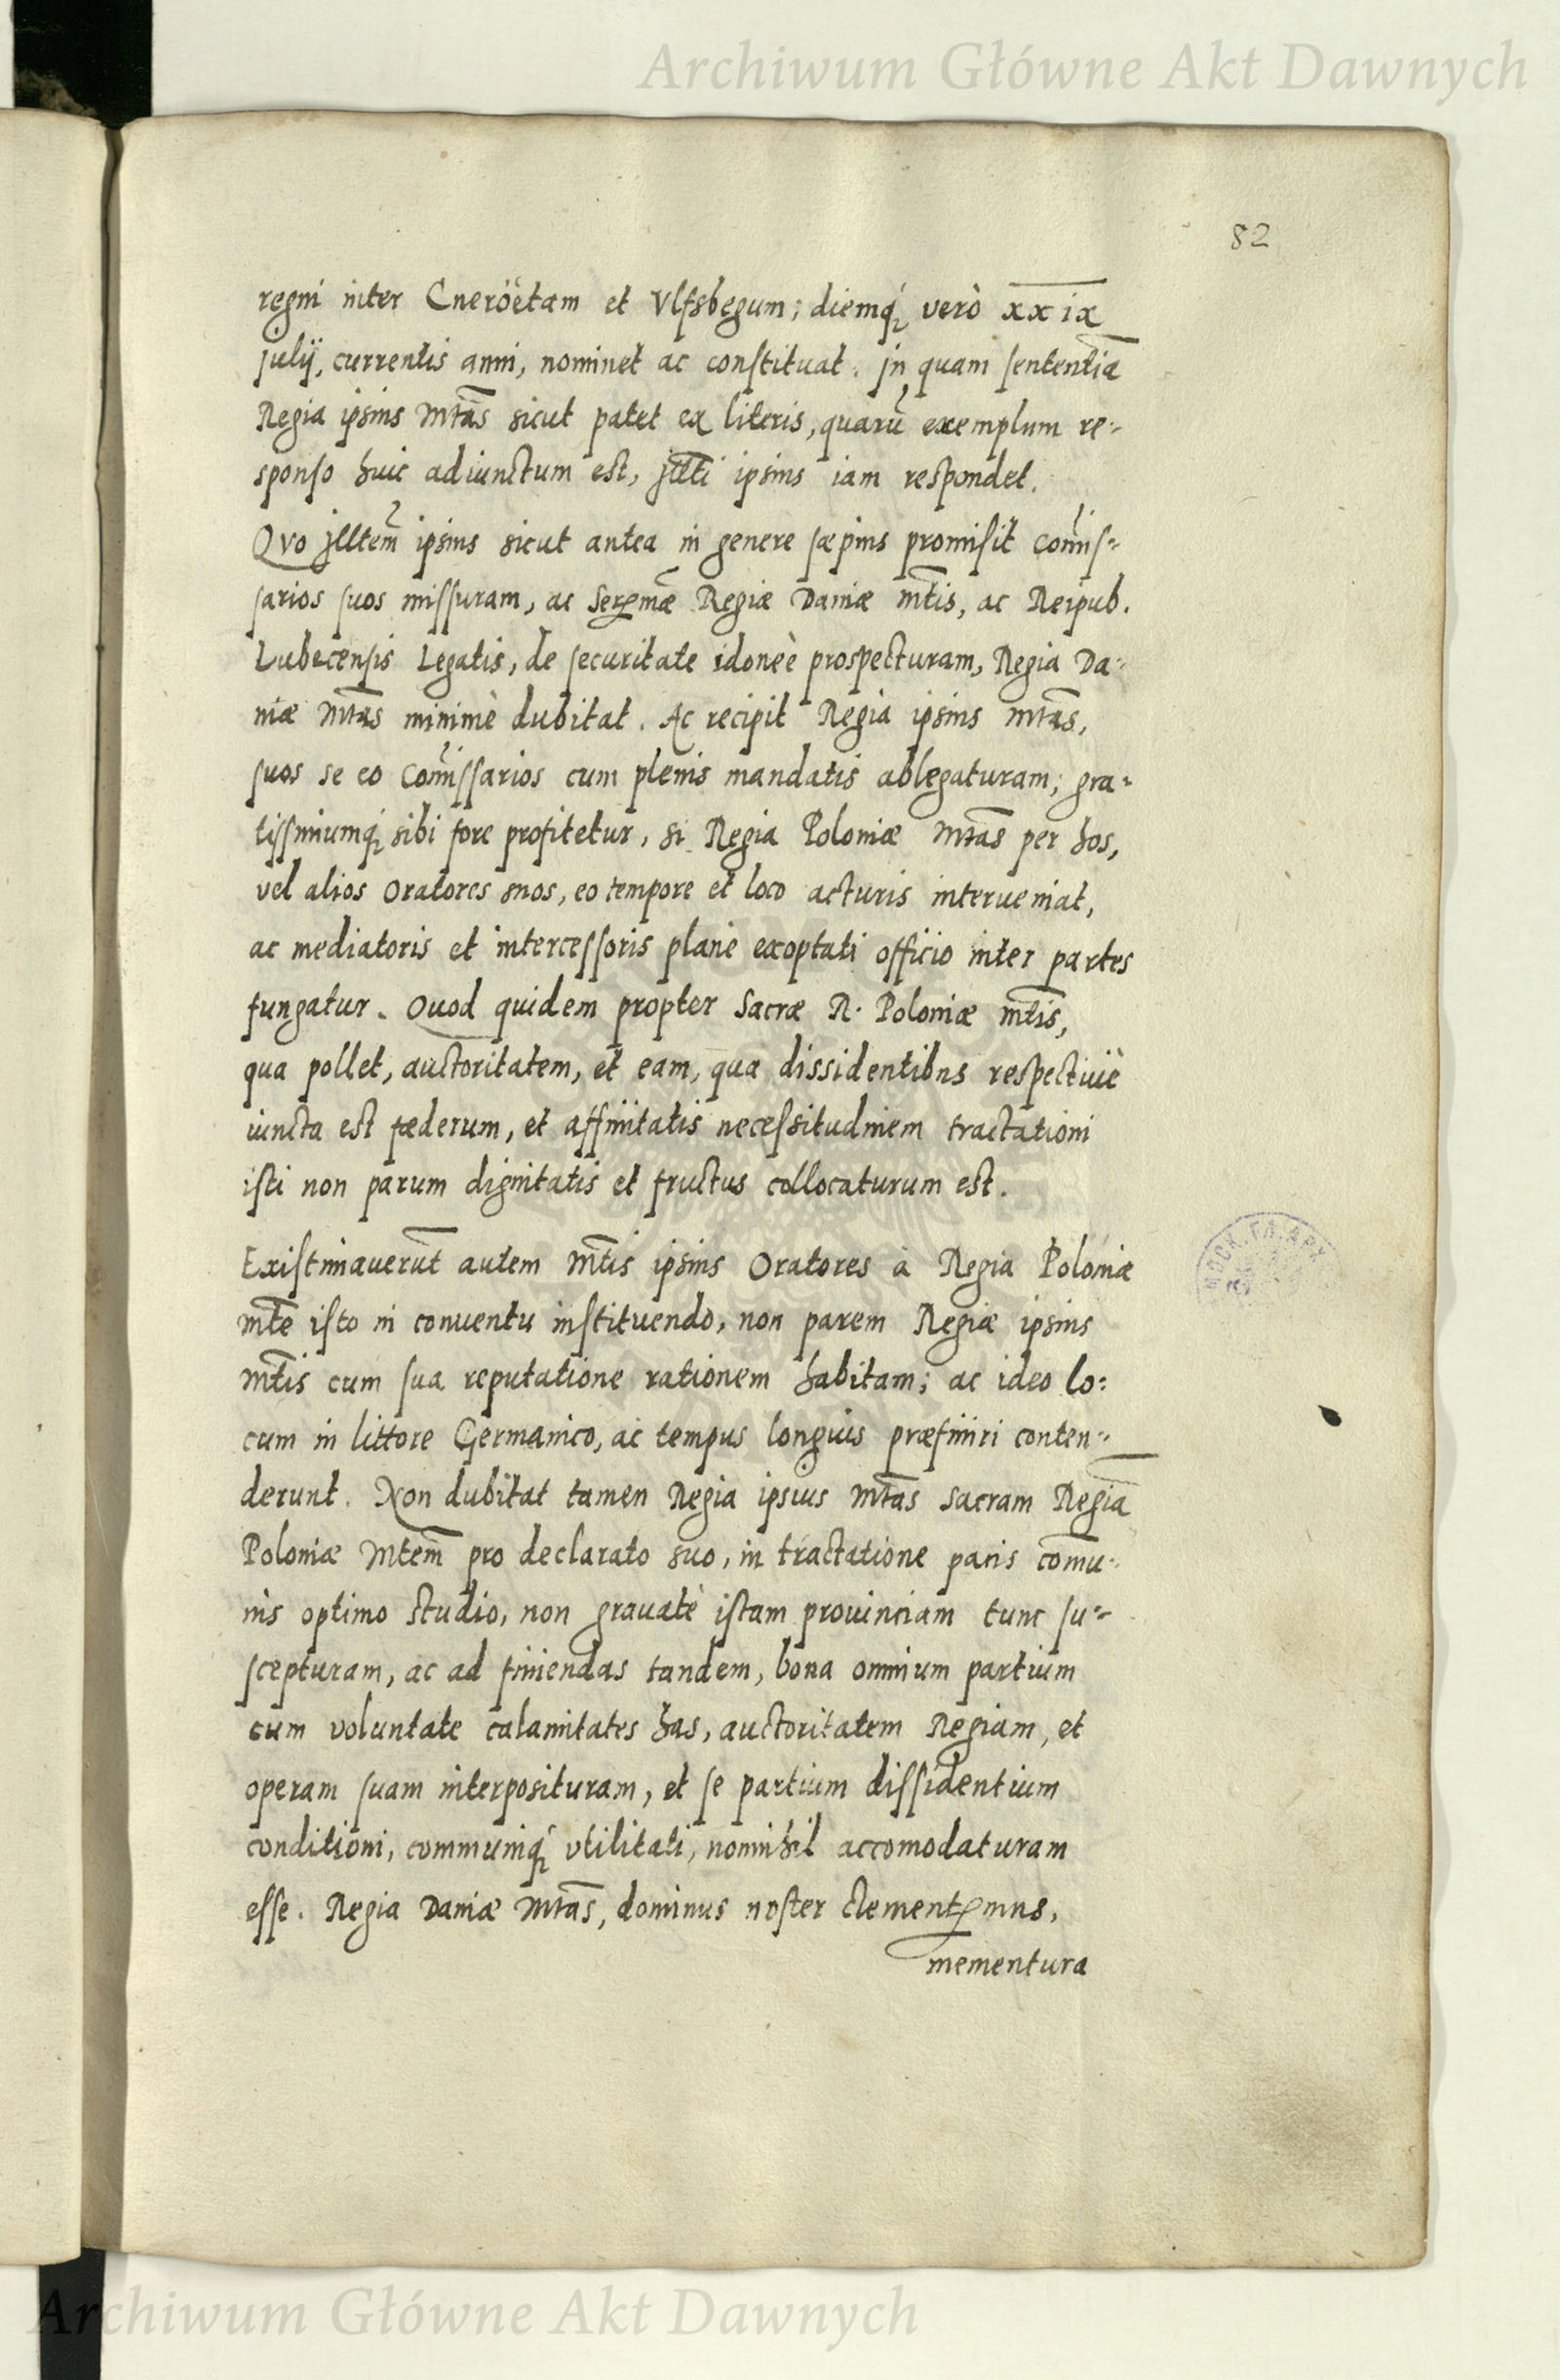 Archiwum Główne Akt Dawnych
82
regni inter Cneröëtam et Vlfsbegum; diemq́ꝫ verò xxix
Julij, currentis anni, nominet ac constituat. In quam sententiā
Regia ipsius Mtās sicut patet ex literis, quarū exemplum re-
sponso huic adiunctum est, Jllti ipsius iam respondet.
Qvo Jlltem̄ ipsius sicut antea in genere sæpius promisit Com̄is-
sarios suos missuram, ac Serꝫmæ Regiæ Daniæ mt̄is, ac Reipub.
Lubecensis Legatis, de securitate idoneè prospecturam, Regia Da-
niæ Mtās minimè dubitat. Ac recipit Regia ipsius Mtās,
suos se eo Com̄issarios cum plenis mandatis ablegaturam; gra-
tissimumq́ꝫ sibi fore profitetur, si Regia Poloniæ Mtās per hos,
vel alios Oratores suos, eo tempore et loco acturis interueniat,
ac mediatoris et intercessoris planè exoptati officio inter partes
fungatur. Quod quidem propter Sacræ R. Poloniæ mt̄is,
qua pollet, auctoritatem, et eam, qua dissidentibus respectiuè
iuncta est fœderum, et affinitatis necessitudinem tractationi
isti non parum dignitatis et fructus collocaturum est.
Existimauerūt autem Mt̄is ipsius Oratores à Regia Poloniæ
mt̄e isto in conuentu instituendo, non parem Regiæ ipsius
Mt̄is cum sua reputatione rationem habitam; ac ideo lo-
cum in littore Germanico, ac tempus longius præfiniri conten-
derunt. Non dubitat tamen Regia ipsius Mtās sacram Regiā
Poloniæ Mtem̄ pro declarato suo, in tractatione pacis com̄u-
nis optimo studio, non grauatè istam prouinciam tunc su-
scepturam, ac ad finiendas tandem, bona omnium partium
cum voluntate calamitates has, auctoritatem Regiam, et
operam suam interposituram, et se partium dissidentium
conditioni, communiq́ꝫ vtilitati, nonnihil accomodaturam
esse. Regia Daniæ Mtās, dominus noster clementꝫmus,
mementura
Archiwum Główne Akt Dawnych